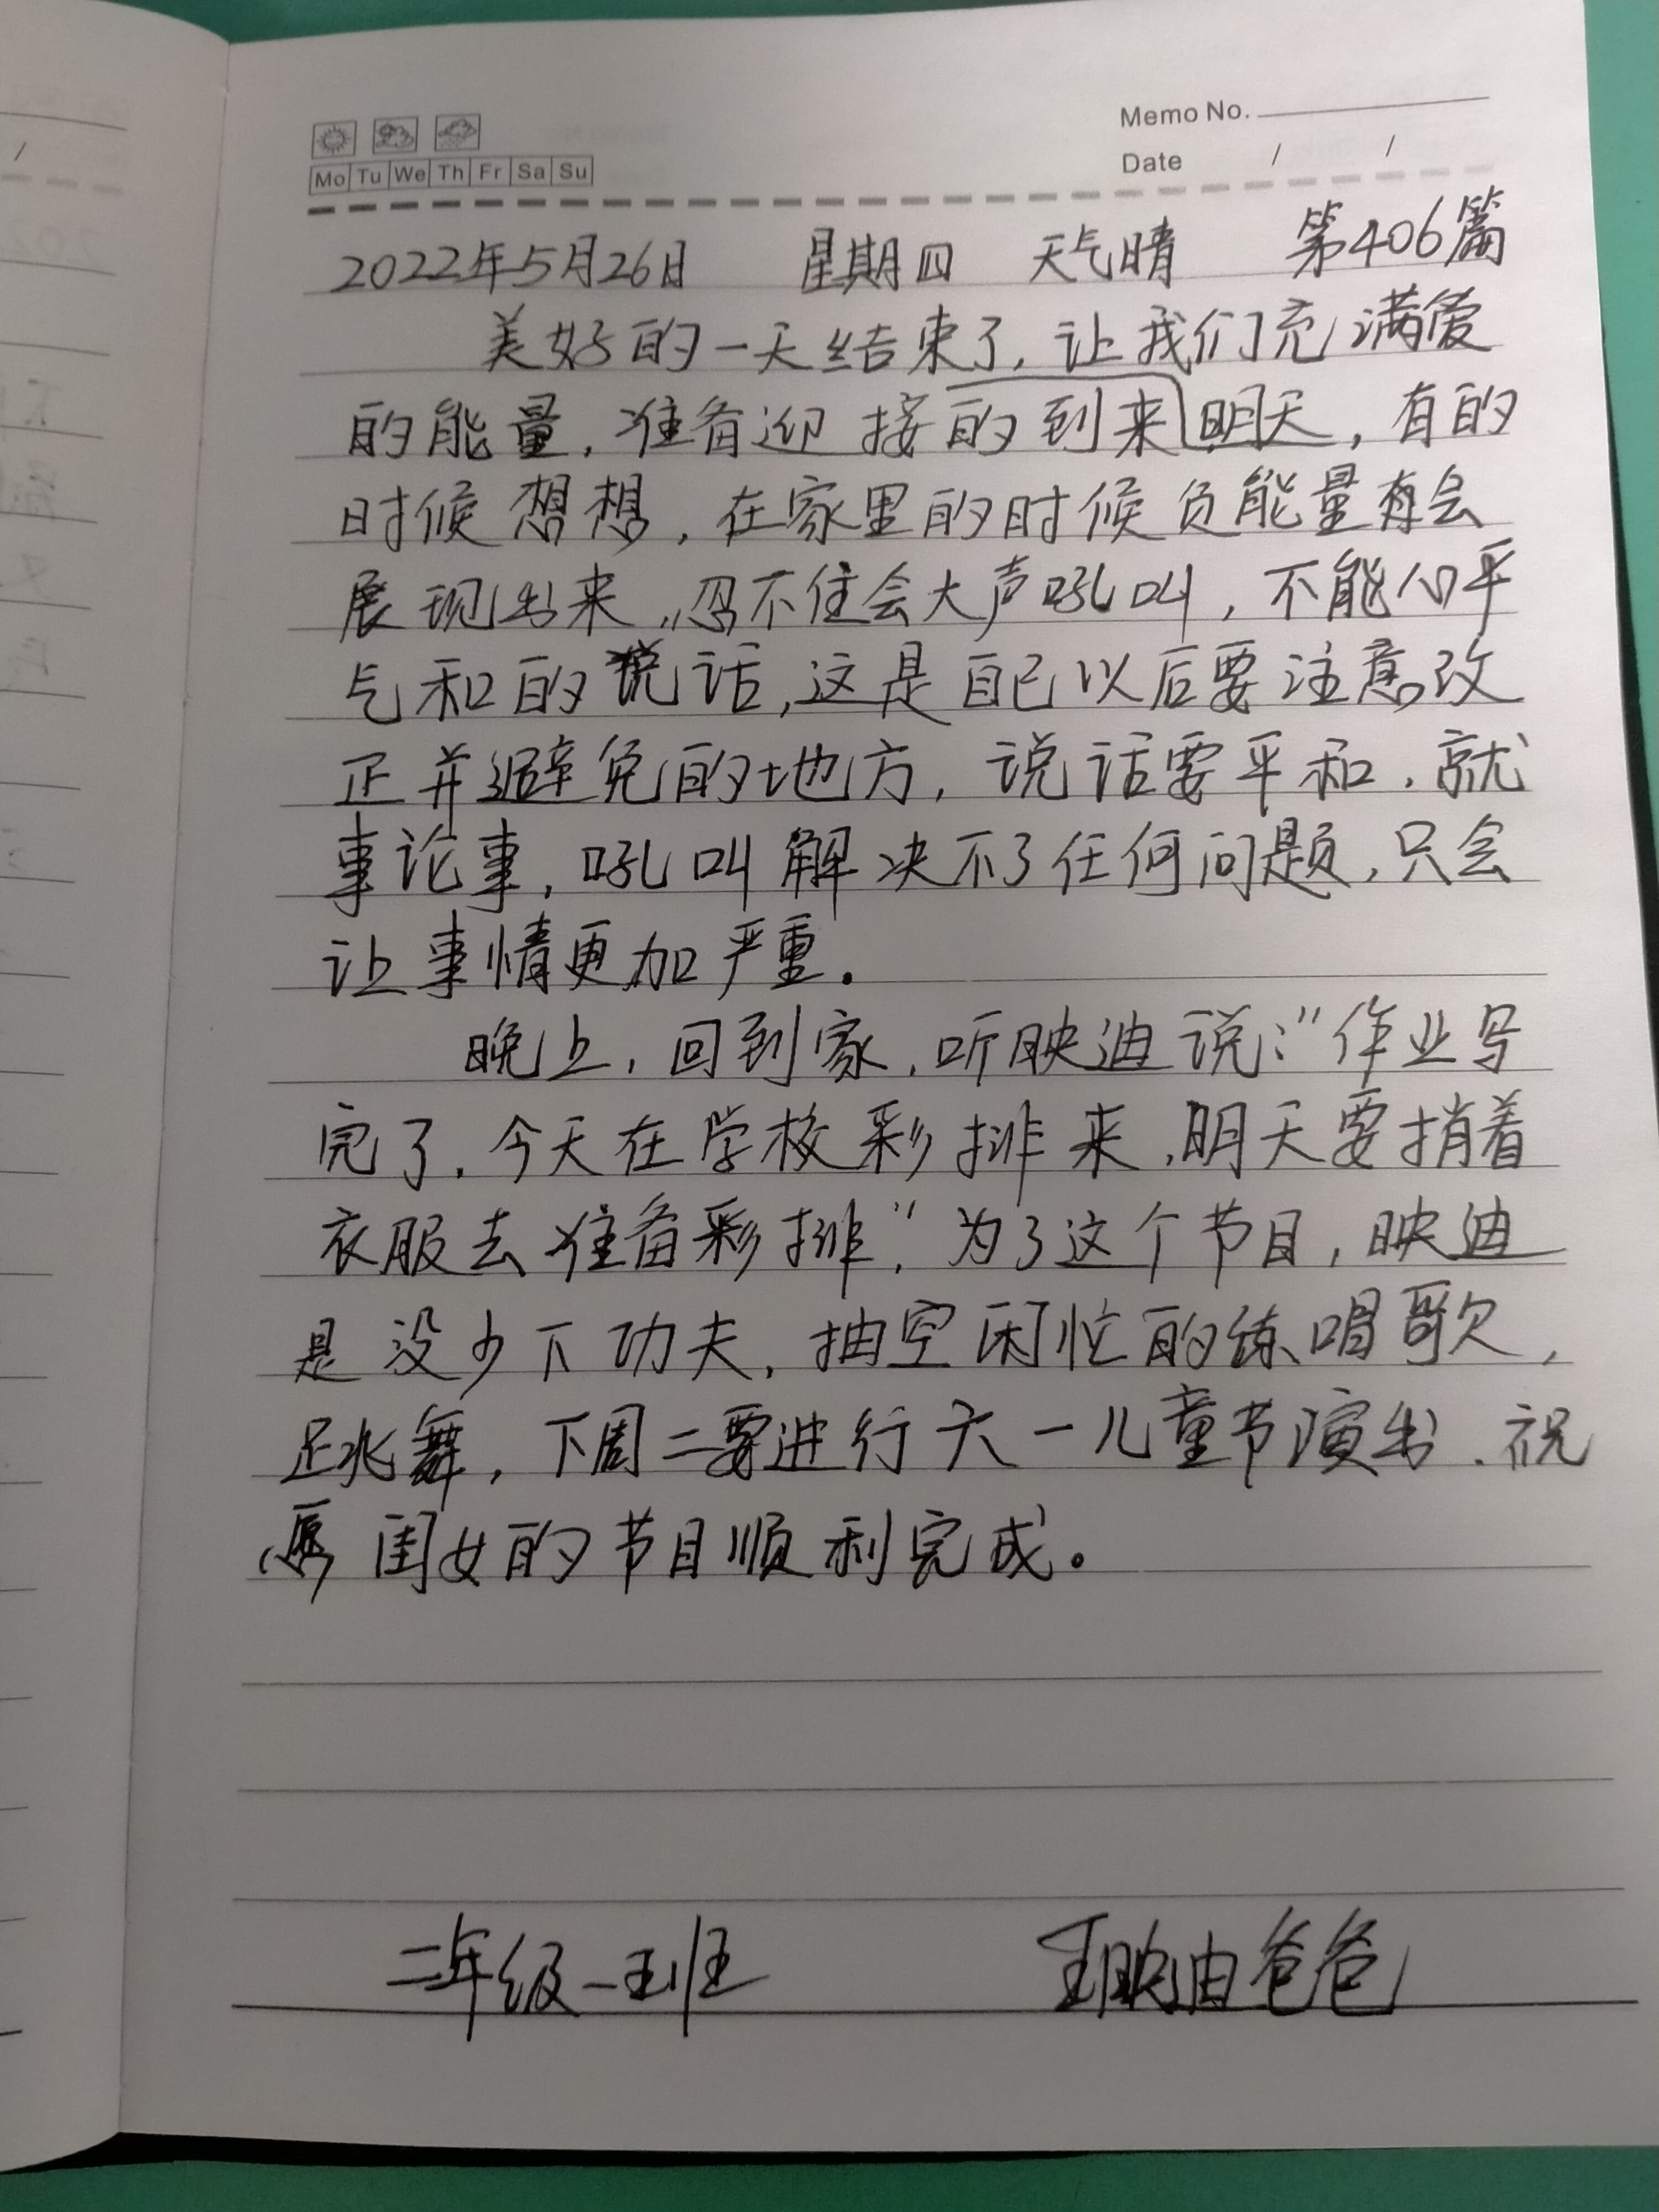 Memo No.
Mo Tu We Th Fr Sa Su
Date / /
2022年5月26日 星期四 天气晴 第406篇
美好的一天结束了,让我们充满爱
的能量,准备迎接的到来明天,有的
时候想想,在家里的时候负能量有会
展现出来,忍不住会大声吼叫,不能心平
气和的说话,这是自己以后要注意改
正并避免的地方,说话要平和,就
事论事,吼叫解决不了任何问题,只会
让事情更加严重.
晚上,回到家,听映迪说:"作业写
完了,今天在学校彩排来,明天要捎着
衣服去准备彩排",为了这个节目,映迪
是没少下功夫,抽空闲忙的练唱歌,
跳舞,下周二要进行六一儿童节演出.祝
愿闺女的节目顺利完成。
二年级一班 王映迪爸爸